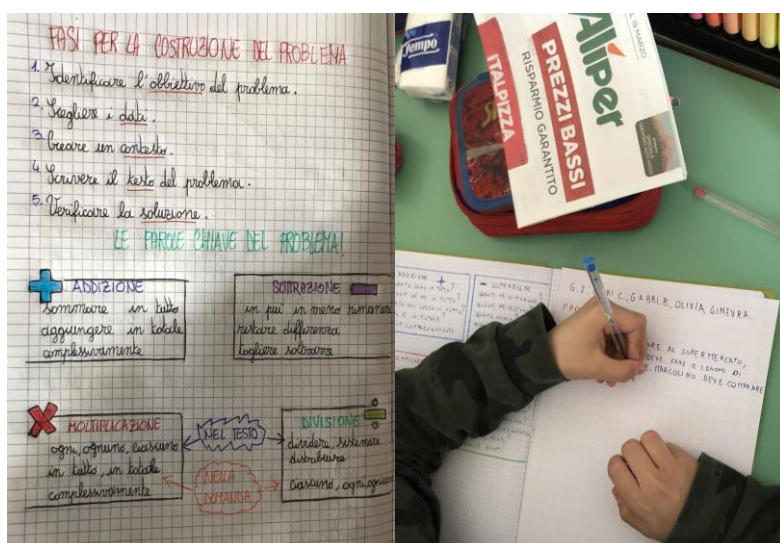 FASI PER LA COSTRUZIONE DEL PROBLEMA
1. Identificare l'obbiettivo del problema.
2. Scegliere i dati.
3. Creare un contesto.
4. Scrivere il testo del problema.
5. Verificare la soluzione.
LE PAROLE CHIAVE DEL PROBLEMA!
ADDIZIONE
sommare in tutto
aggiungere in totale
complessivamente
SOTTRAZIONE
in più in meno rimanere
restare differenza
togliere sottrarre
MOLTIPLICAZIONE
ogni, ognuno, ciascuno
in tutto, in totale
complessivamente
NEL TESTO
NELLA
DOMANDA
DIVISIONE
dividere, sistemare
distribuire
ciascuno, ogni,
Tempo
ITALPIZZA
Aliper
PREZZI BASSI
RISPARMIO GARANTITO
IL 15 MARZO
ADDIZIONE
SOTTRAZIONE
C., GABRI.B, OLIVIA, GINEVRA.
AL SUPERMERCATO,
DEVE FARE IL CENONE DI
MARCOLINO DEVE COMPRARE